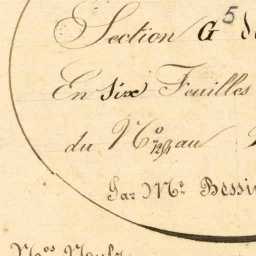 Section G 5
En Six Feuilles
du N.º au
Par Mr. Bessi
Nos